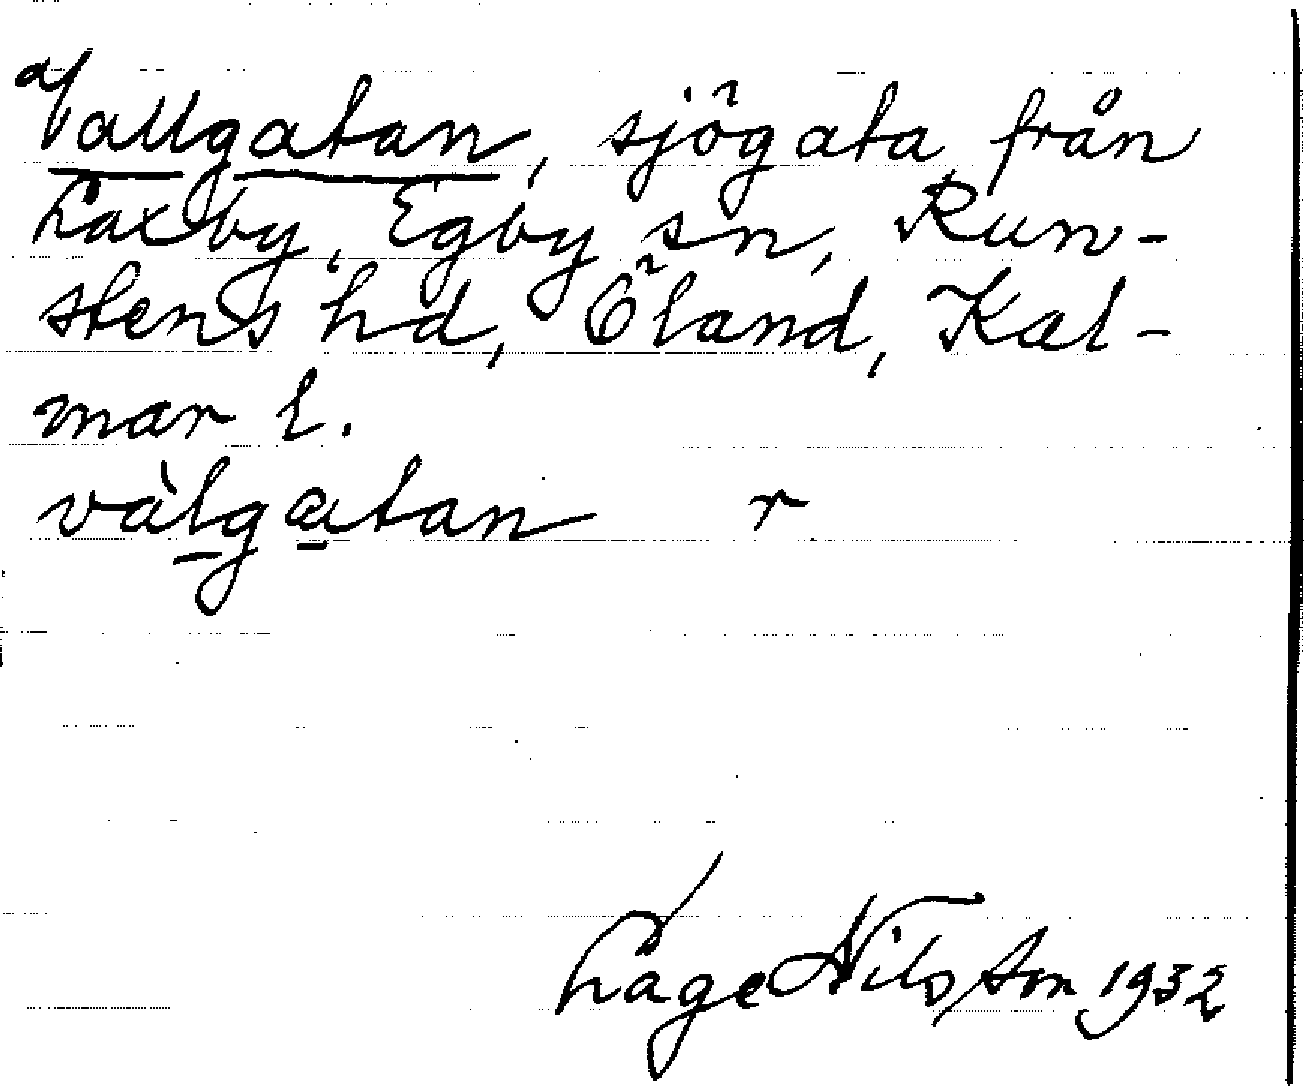 Vallgatan, sjögata från
Laxby, Egby sn, Run-
stens hd, Öland, Kal-
mar l.
vàlgatan r
Låge Nilsson 1932